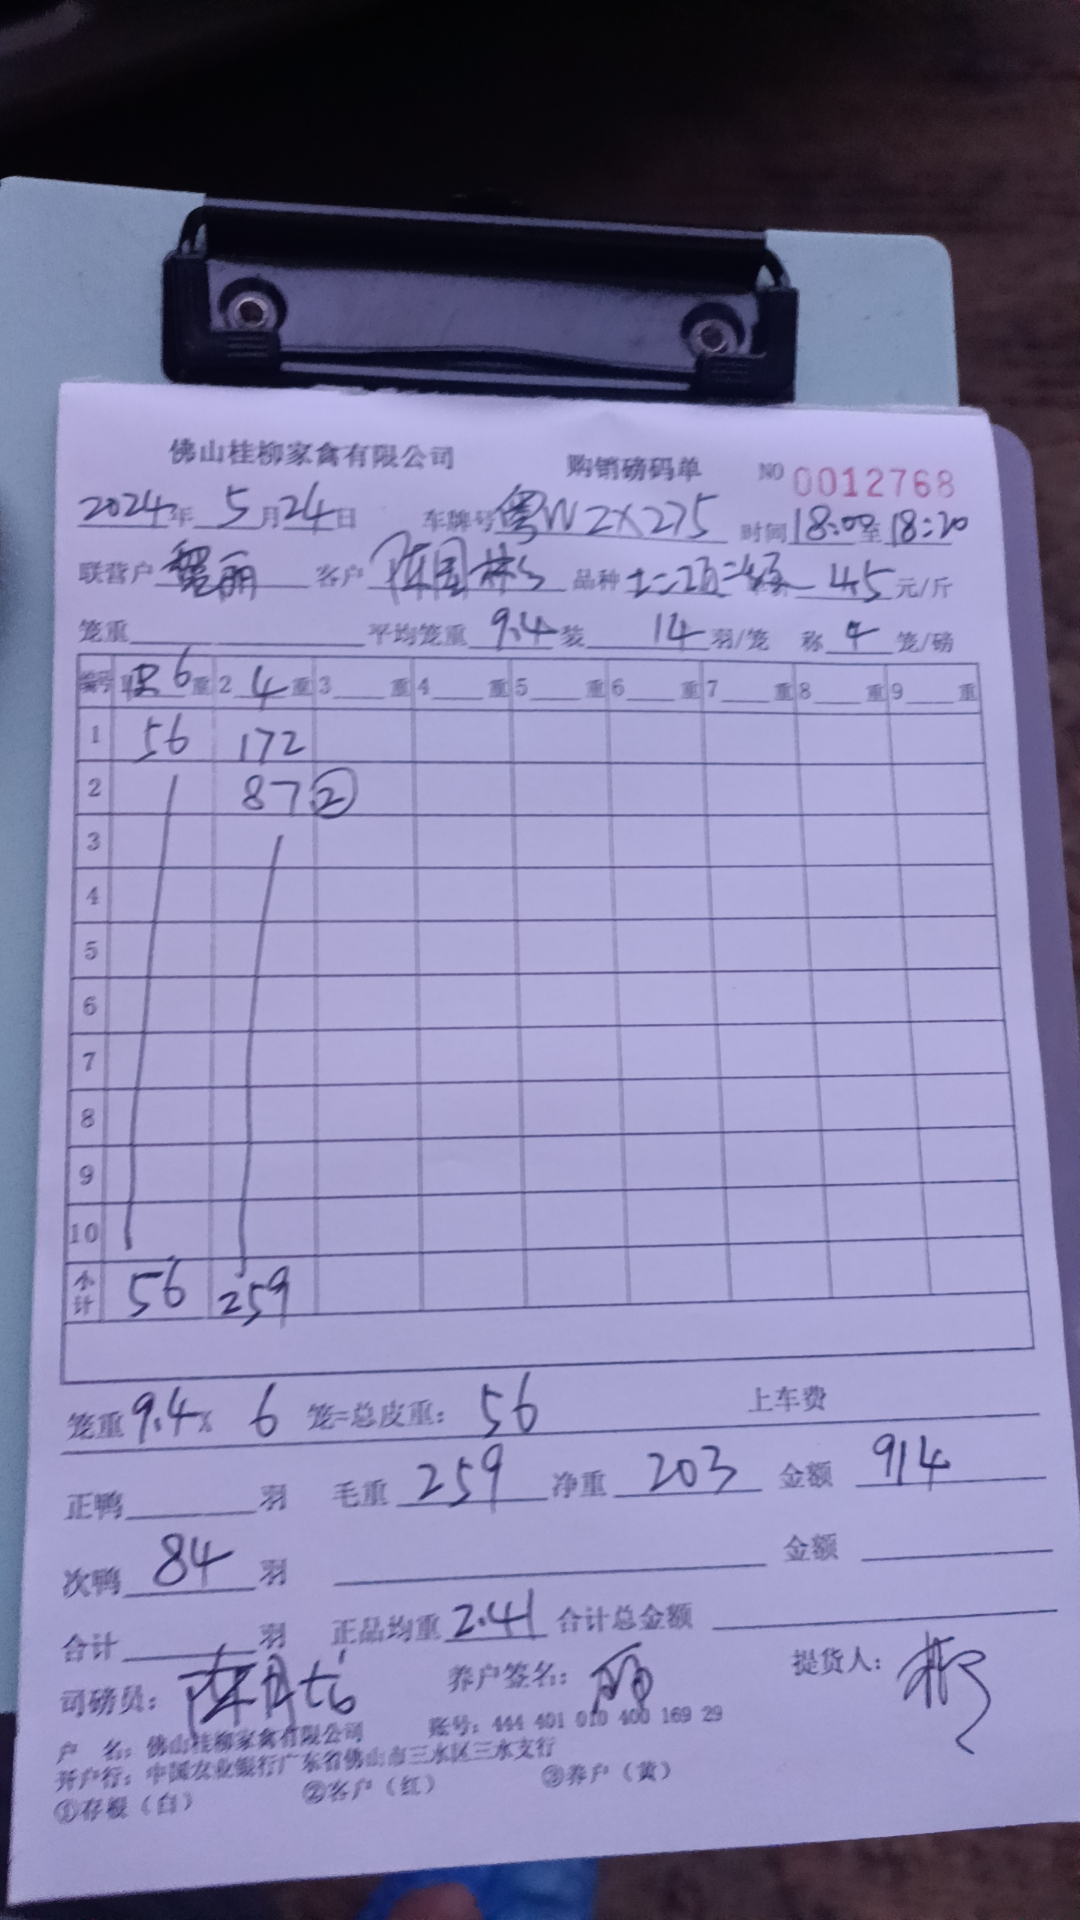 佛山桂柳家禽有限公司 购销磅码单 NO 0012768
2024年 5月24日 车牌号 粤W2X275 时间18:00至18:20
联营户 丽 客户 陈国彬 品种 土二 45 元/斤
笼重 平均笼重 9.4 装 14 羽/笼 称 4 笼/磅
编号 1 皮 6 重 2 4 重 3 重 4 重 5 重 6 重 7 重 8 重 9 重
1 56 172
2 87 ②
3
4
5
6
7
8
9
10
小计 56 259
笼重 9.4 X 6 笼=总皮重: 56 上车费
正鸭 羽 毛重 259 净重 203 金额 914
次鸭 84 羽 金额
合计 羽 正品均重 2.41 合计总金额
司磅员: 养户签名: 丽 提货人: 彬
户 名: 佛山桂柳家禽有限公司 账号: 444 401 010 400 169 29
开户行: 中国农业银行广东省佛山市三水区三水支行
①存根（白） ②客户（红） ③养户（黄）